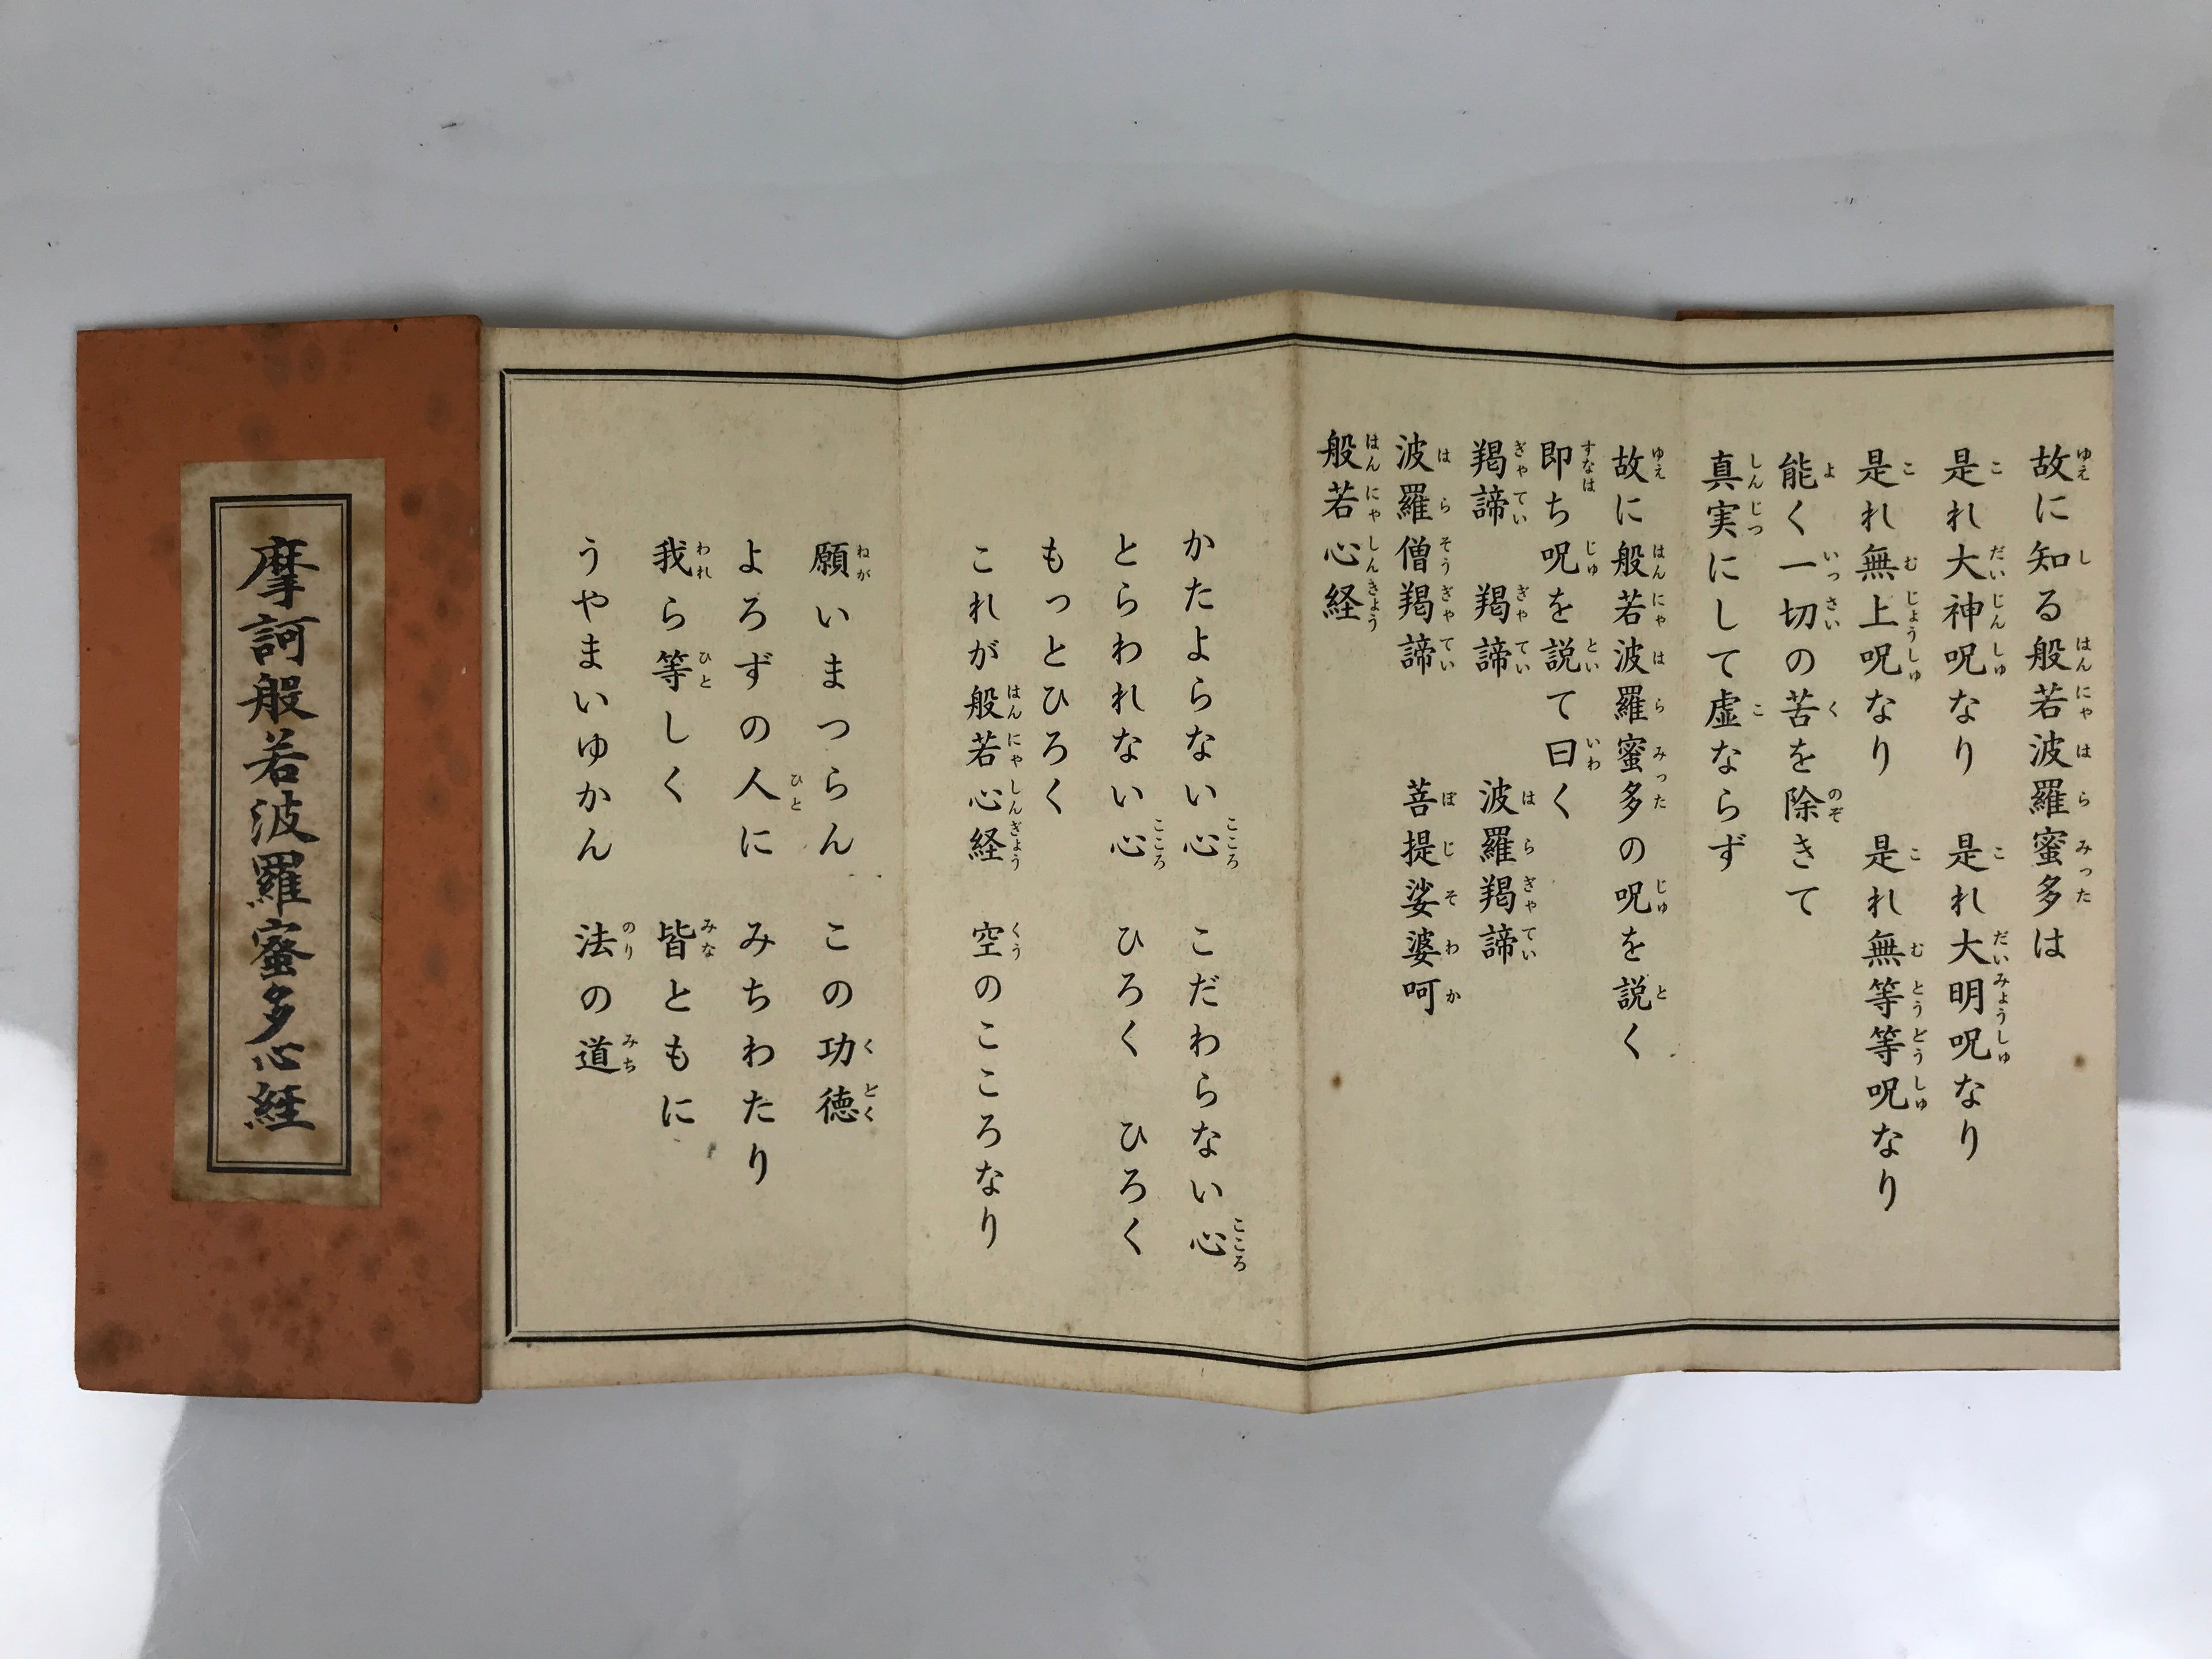 故に知る般若波羅蜜多は
是れ大神呪なり　是れ大明呪なり
是れ無上呪なり　是れ無等等呪なり
能く一切の苦を除きて
真実にして虚ならず
故に般若波羅蜜多の呪を説く
即ち呪を説て曰く
羯諦　羯諦　波羅羯諦
波羅僧羯諦　菩提娑婆呵
般若心経
かたよらない心　こだわらない心
とらわれない心　ひろく　ひろく
もっとひろく
これが般若心経　空のこころなり
願いまつらん　この功徳
よろずの人に　みちわたり
我ら等しく　皆ともに
うやまいゆかん　法の道
摩訶般若波羅蜜多心経